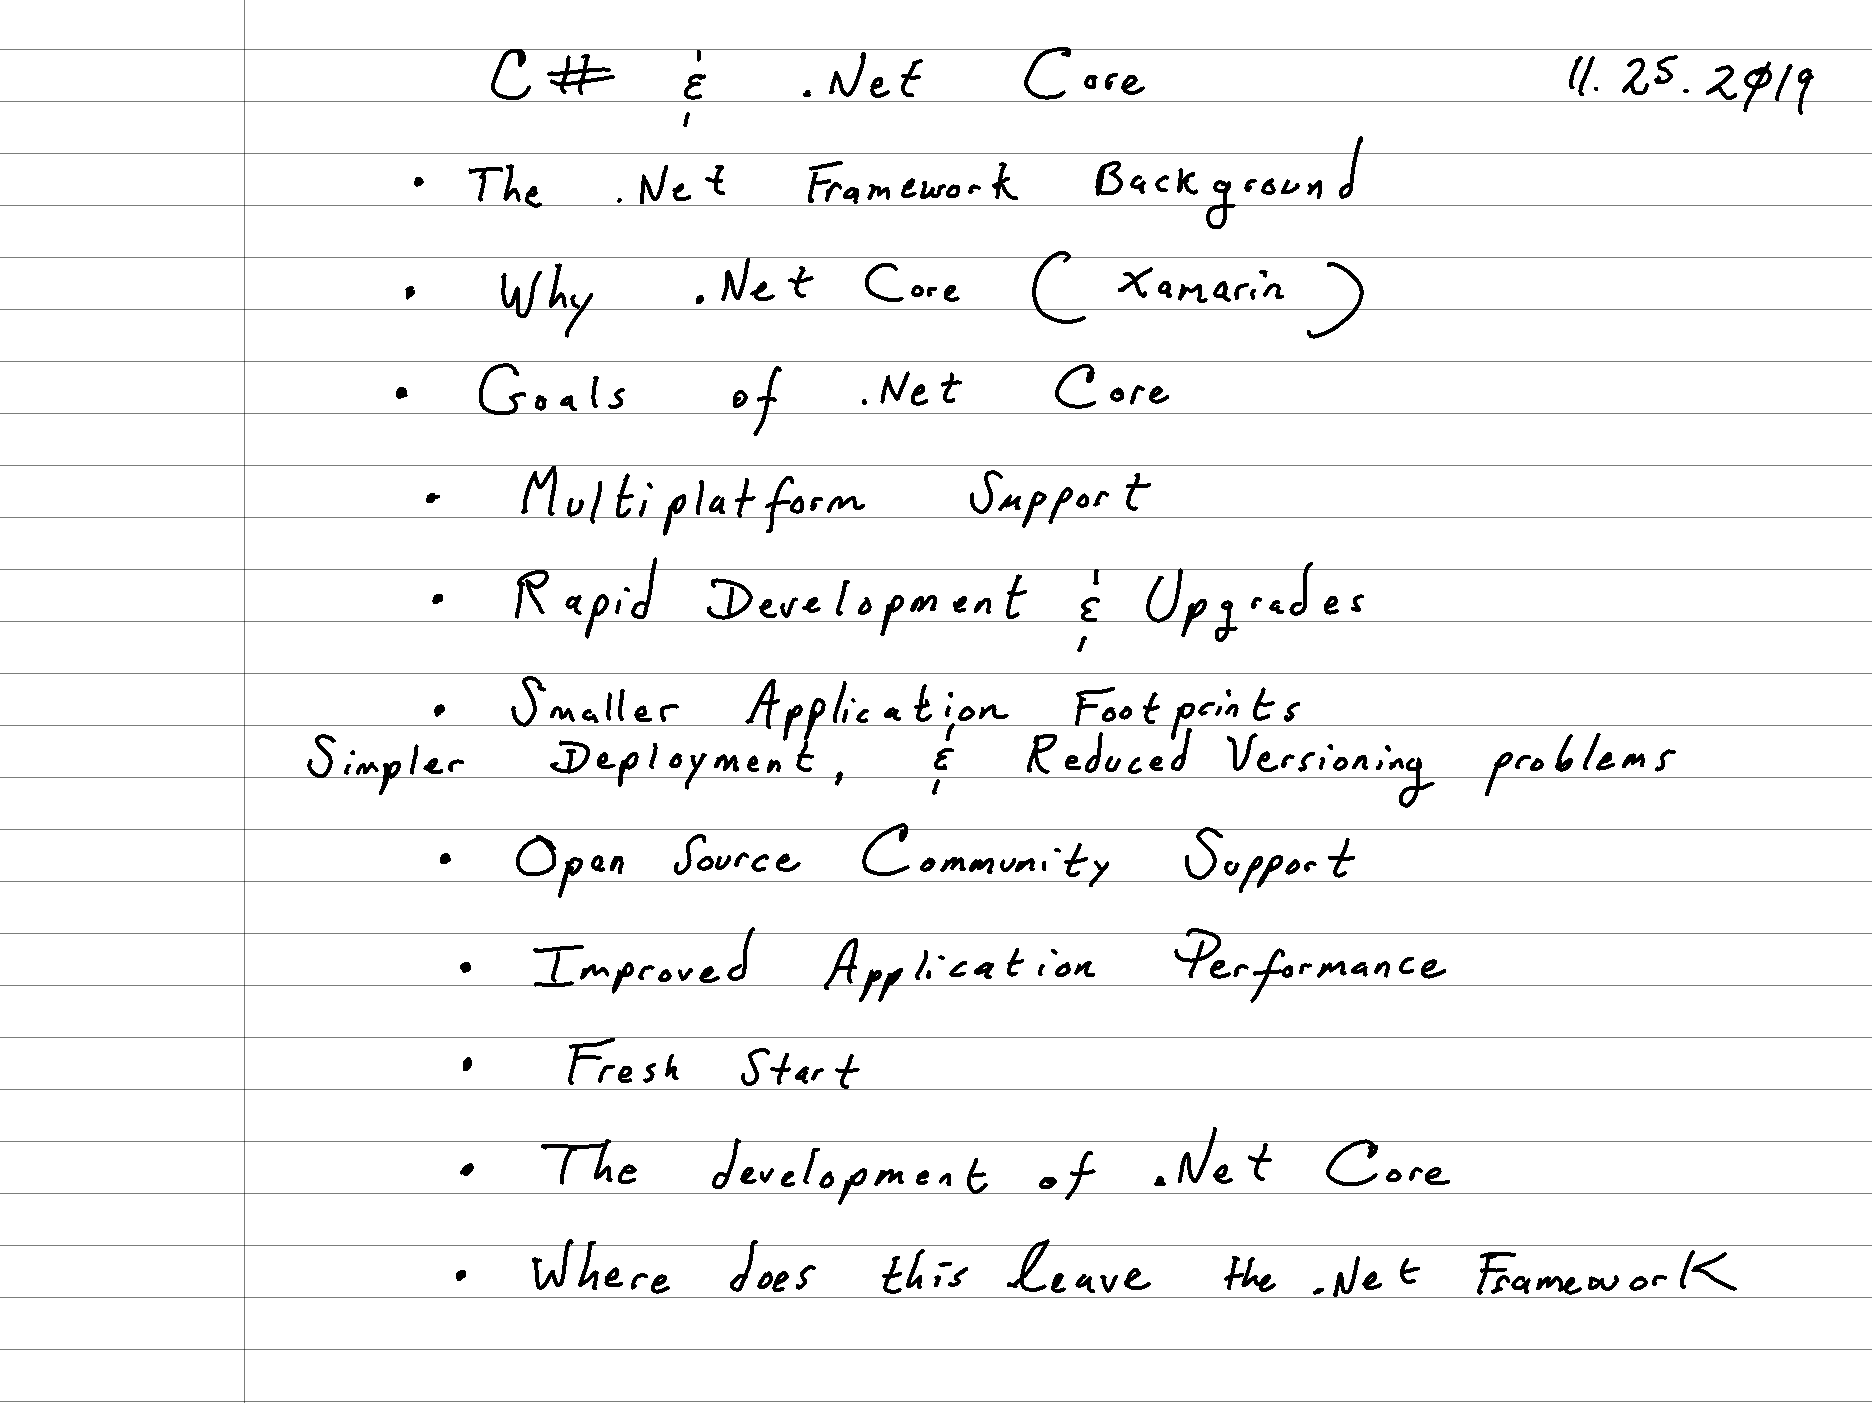 C# & .Net Core 11.25.2019
• The .Net Framework Background
• Why .Net Core (Xamarin)
• Goals of .Net Core
• Multiplatform Support
• Rapid Development & Upgrades
• Smaller Application Footprints
Simpler Deployment, & Reduced Versioning problems
• Open Source Community Support
• Improved Application Performance
• Fresh Start
• The development of .Net Core
• Where does this leave the .Net Framework